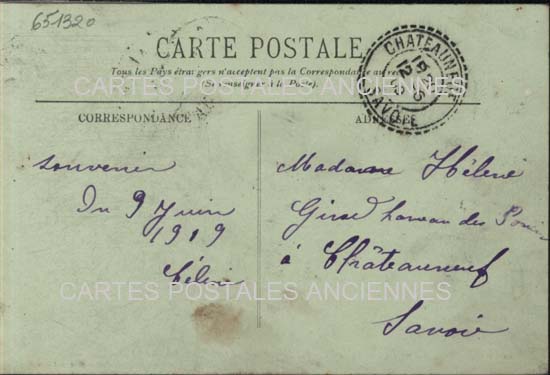 651320
CARTE POSTALE
Tous les Pays étrangers n'acceptent pas la Correspondance au recto
(Se renseigner à la Poste).
CARTES POSTALES ANCIENNES
CHATEAUNEUF
SAVOIE
CORRESPONDANCE
ADRESSE
Souvenir
Du 9 Juin
1919
Madame Hélène
hameau des
à Châteauneuf
Savoie
CARTES POSTALES ANCIENNES